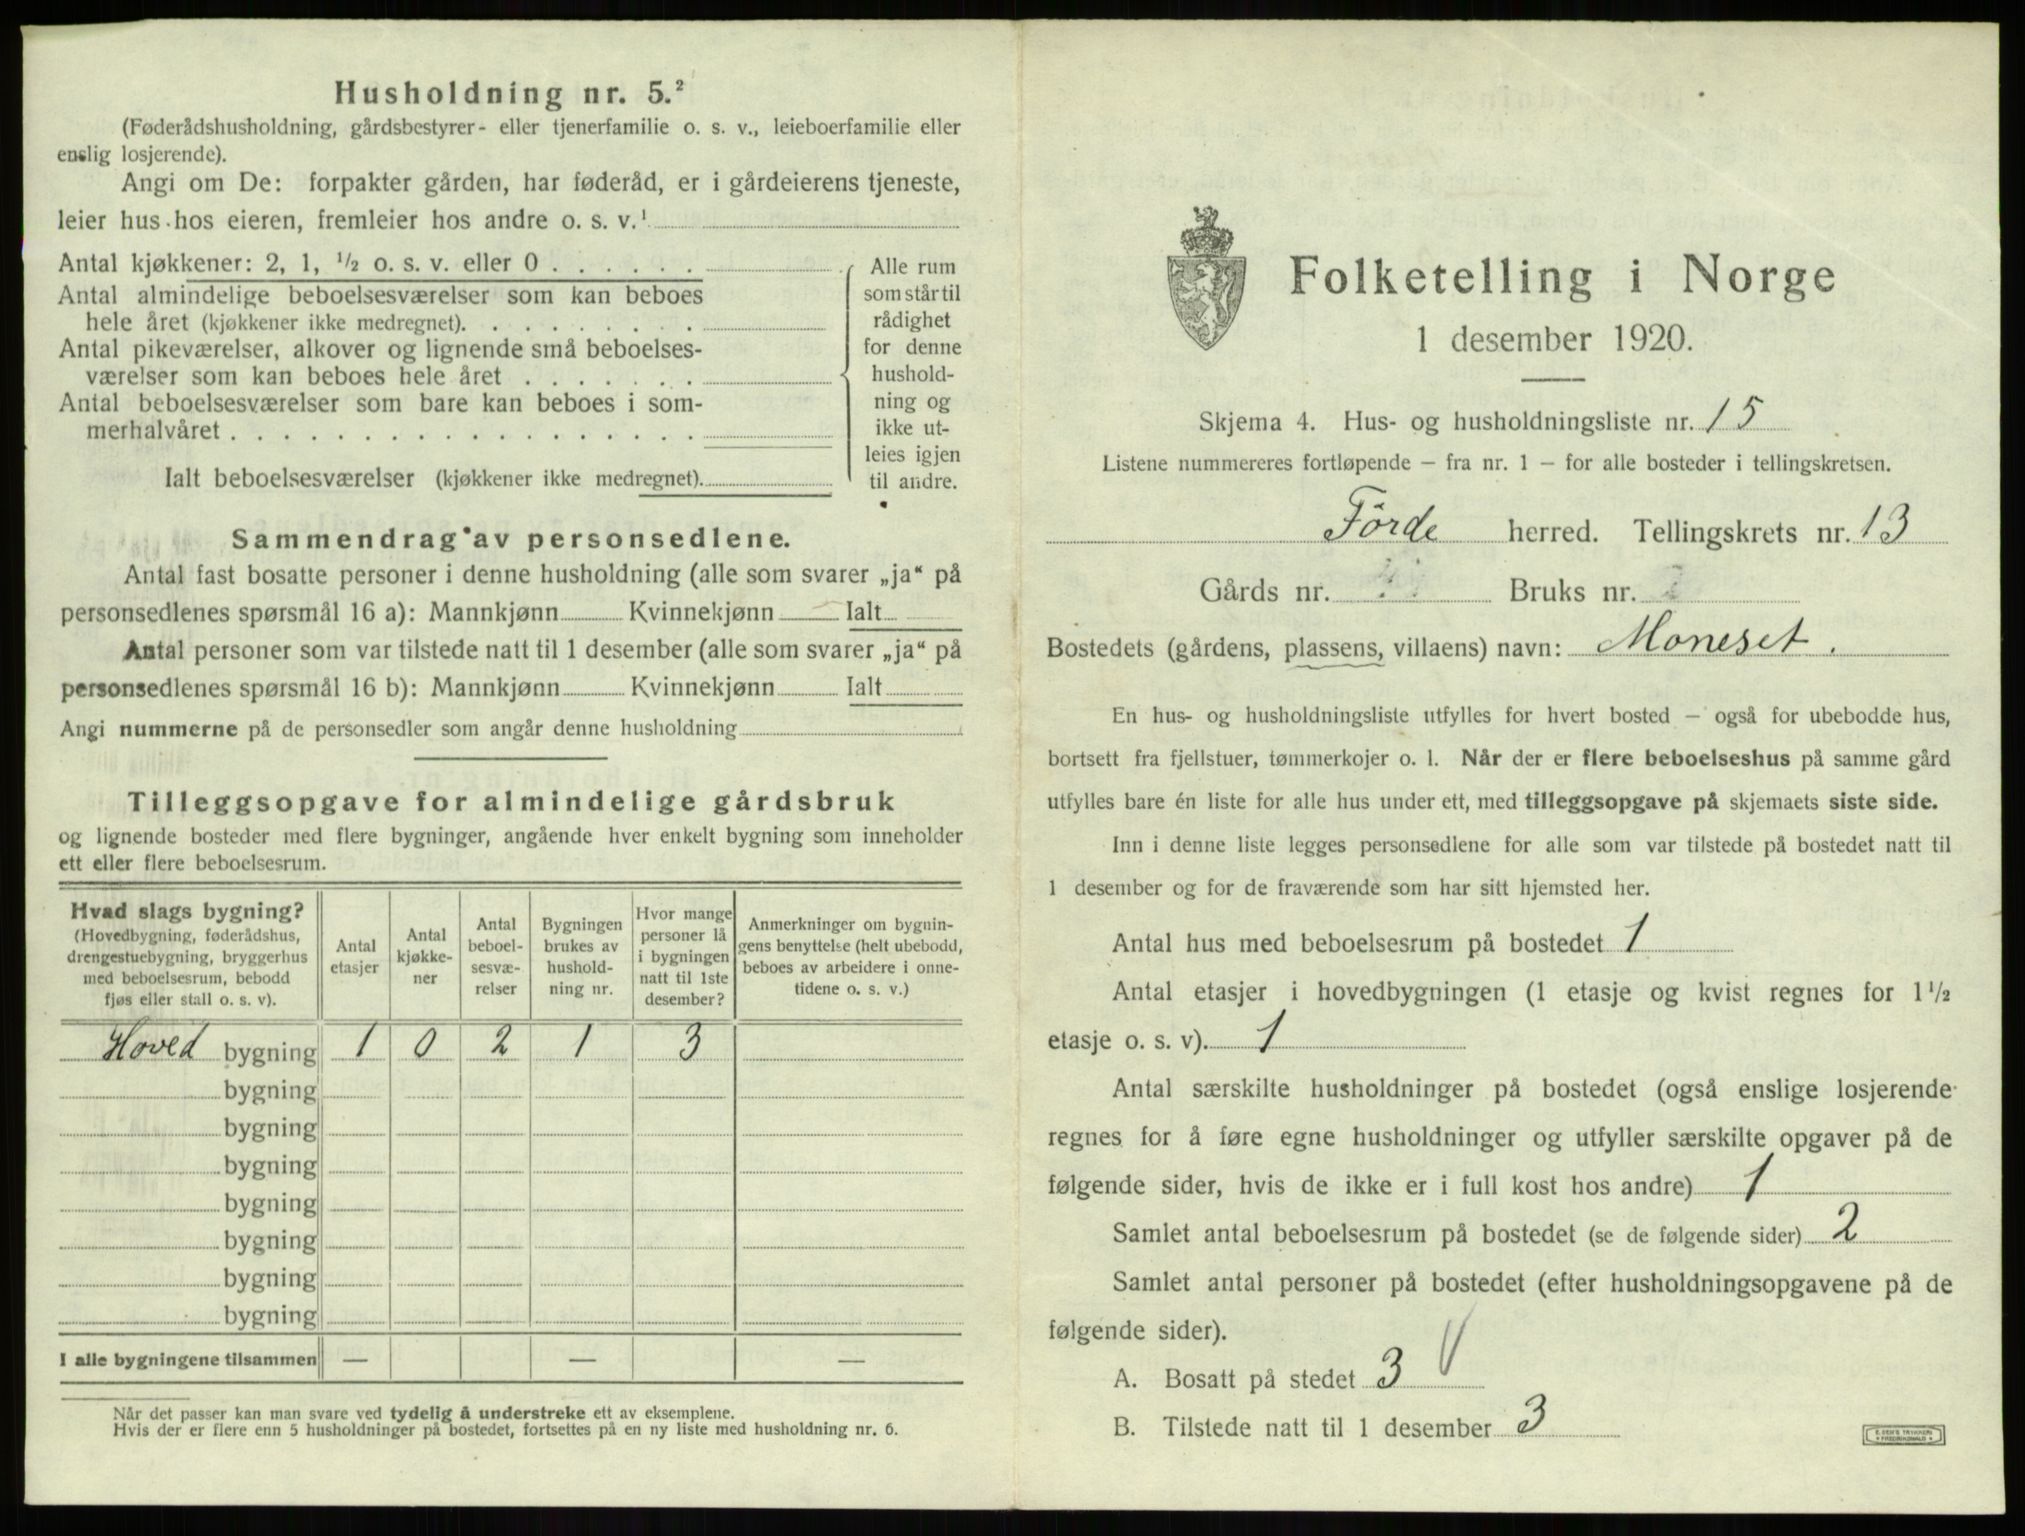 Husholdning nr. 5.²
(Føderådshusholdning, gårdsbestyrer- eller tjenerfamilie o. s. v., leieboerfamilie eller
enslig losjerende).
Angi om De: forpakter gården, har føderåd, er i gårdeierens tjeneste,
leier hus hos eieren, fremleier hos andre o. s. v.¹
Antal kjøkkener: 2, 1, ½ o. s. v. eller 0 . . . . . .
Antal almindelige beboelsesværelser som kan beboes
hele året (kjøkkener ikke medregnet). . . . . . . . .
Antal pikeværelser, alkover og lignende små beboelses-
værelser som kan beboes hele året . . . . . . .
Antal beboelsesværelser som bare kan beboes i som-
merhalvåret . . . . . . . . . . . . . . . . . .
Ialt beboelsesværelser (kjøkkener ikke medregnet).
Alle rum
som står til
rådighet
for denne
hushold-
ning og
ikke ut-
leies igjen
til andre.
Sammendrag av personsedlene.
Antal fast bosatte personer i denne husholdning (alle som svarer „ja“ på
personsedlenes spørsmål 16 a): Mannkjønn Kvinnekjønn Ialt
Antal personer som var tilstede natt til 1 desember (alle som svarer „ja“ på
personsedlenes spørsmål 16 b): Mannkjønn Kvinnekjønn Ialt
Angi nummerne på de personsedler som angår denne husholdning
Tilleggsopgave for almindelige gårdsbruk
og lignende bosteder med flere bygninger, angående hver enkelt bygning som inneholder
ett eller flere beboelsesrum.
Hvad slags bygning?
(Hovedbygning, føderådshus,
drengestuebygning, bryggerhus
med beboelsesrum, bebodd
fjøs eller stall o. s. v).
Antal
etasjer
Antal
kjøkke-
ner
Antal
beboel-
sesvæ-
relser
Bygningen
brukes av
hushold-
ning nr.
Hvor mange
personer lå
i bygningen
natt til 1ste
desember?
Anmerkninger om bygnin-
gens benyttelse (helt ubebodd,
beboes av arbeidere i onne-
tidene o. s. v.)
Hoved bygning 1 0 2 1 3
bygning
bygning
bygning
bygning
bygning
bygning
bygning
I alle bygningene tilsammen — — —
Når det passer kan man svare ved tydelig å understreke ett av eksemplene.
Hvis der er flere enn 5 husholdninger på bostedet, fortsettes på en ny liste med husholdning nr. 6.
Folketelling i Norge
1 desember 1920.
Skjema 4. Hus- og husholdningsliste nr. 15
Listene nummereres fortløpende – fra nr. 1 – for alle bosteder i tellingskretsen.
Förde herred. Tellingskrets nr. 13
Gårds nr. Bruks nr.
Bostedets (gårdens, plassens, villaens) navn: Moneset.
En hus- og husholdningsliste utfylles for hvert bosted – også for ubebodde hus,
bortsett fra fjellstuer, tømmerkojer o. l. Når der er flere beboelseshus på samme gård
utfylles bare én liste for alle hus under ett, med tilleggsopgave på skjemaets siste side.
Inn i denne liste legges personsedlene for alle som var tilstede på bostedet natt til
1 desember og for de fraværende som har sitt hjemsted her.
Antal hus med beboelsesrum på bostedet 1
Antal etasjer i hovedbygningen (1 etasje og kvist regnes for 1½
etasje o. s. v). 1
Antal særskilte husholdninger på bostedet (også enslige losjerende
regnes for å føre egne husholdninger og utfyller særskilte opgaver på de
følgende sider, hvis de ikke er i full kost hos andre) 1
Samlet antal beboelsesrum på bostedet (se de følgende sider) 2
Samlet antal personer på bostedet (efter husholdningsopgavene på de
følgende sider).
A. Bosatt på stedet 3
B. Tilstede natt til 1 desember 3